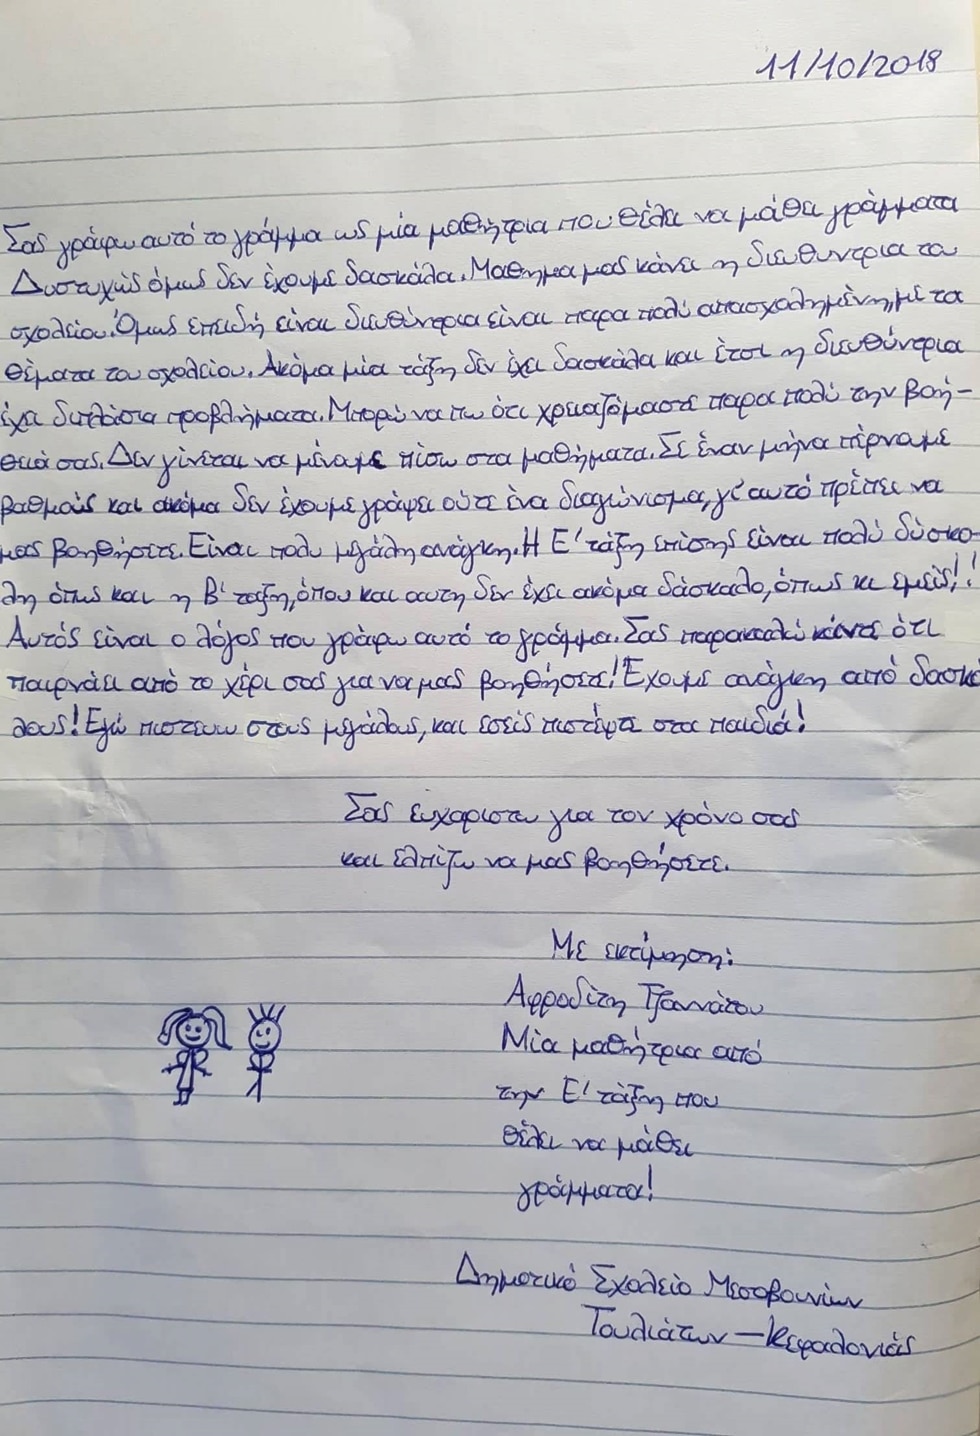 11/10/2018
Σας γράφω αυτό το γράμμα ως μία μαθήτρια που θέλει να μάθει γράμματα
Δυστυχώς όμως δεν έχουμε δασκάλα. Μαθημα μας κάνει η διευθυντρια του
σχολείου. Όμως επειδή είναι διευθύντρια είναι παρα πολύ απασχολημένη, με τα
θέματα του σχολείου. Ακόμα μία τάξη δεν έχει δασκάλα και έτσι η διευθύντρια
έχει διπλάσια προβλήματα. Μπορώ να πω ότι χρειαζόμαστε παρα πολύ την βοή-
θειά σας. Δεν γίνεται να μένουμε πίσω στα μαθήματα. Σε έναν μήνα πέρναμε
βαθμούς και ακόμα δεν έχουμε γράψει ούτε ένα διαγώνισμα, γι' αυτό πρέπει να
μας βοηθήσετε. Είναι πολυ μεγάλη ανάγκη. Η Ε' τάξη επίσης είναι πολύ δύσκο-
λη όπως και η Β' ταξη, όπου και αυτη δεν έχει ακόμα δάσκαλο, όπως κι εμείς!!
Αυτός είναι ο λόγος που γράφω αυτό το γράμμα. Σας παρακαλώ κάντε ότι
παιρνάει από το χέρι σας για να μας βοηθήσετε! Έχουμε ανάγκη από δασκά
λους! Εγώ πιστευω στους μεγάλους, και εσείς πιστέψτε στα παιδιά!
Σας ευχαριστω για τον χρόνο σας
και ελπίζω να μας βοηθήσετε.
Με εκτίμηση:
Αφροδίτη Τζαννάτου
Μία μαθήτρια από
την Ε' τάξη που
θέλει να μάθει
γράμματα!
Δημοτικό Σχολείο Μεσοβουνίων
Τουλιάτων - Κεφαλονιάς